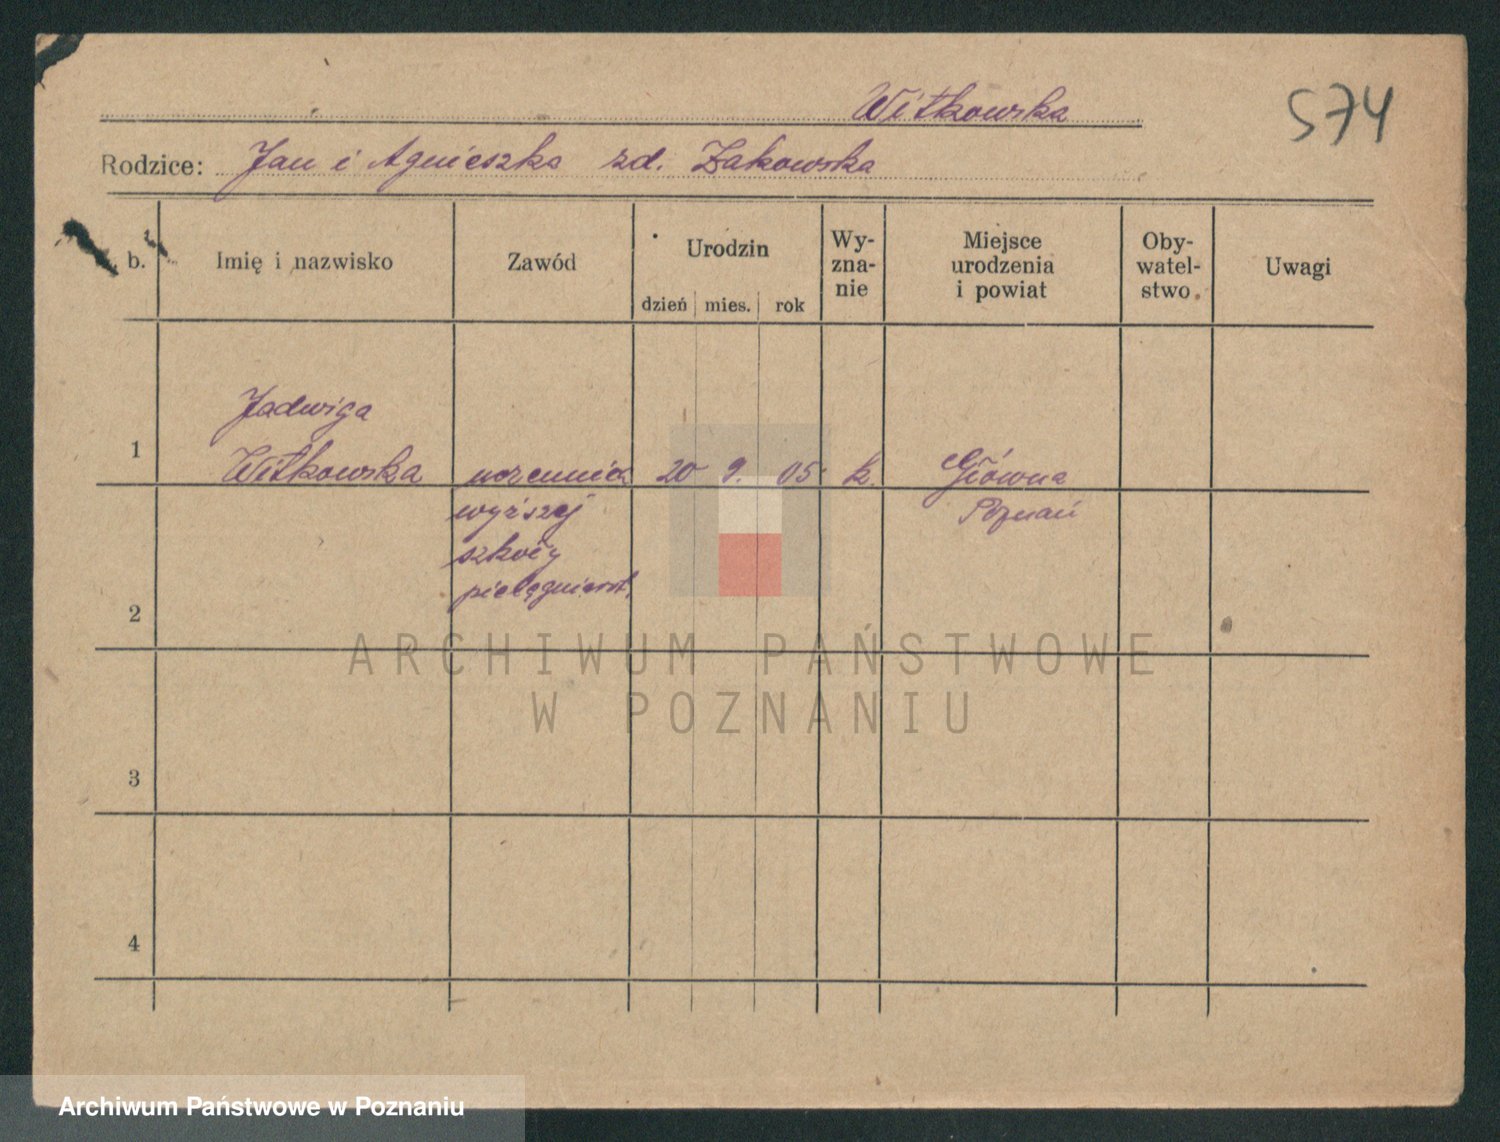 Witkowska
574
Rodzice: Jan i Agnieszka zd. Żakowska
b.
Imię i nazwisko
Zawód
Urodzin
dzień mies. rok
Wy-
zna-
nie
Miejsce
urodzenia
i powiat
Oby-
watel-
stwo
Uwagi
1
Jadwiga
Witkowska
uczennica
wyższej
szkoły
pielęgniarst.
20 9. 05
k.
Główna
Poznań
2
3
4
ARCHIWUM PAŃSTWOWE
W POZNANIU
Archiwum Państwowe w Poznaniu